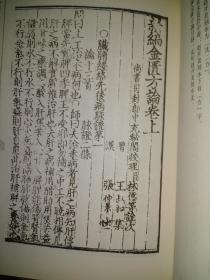 新編金匱方論卷上
尚書司封郎中充秘閣校理臣林億等詮次
晉 王叔和 集
漢 張仲景 述
臟腑經絡先後病脉證第一
論十三首 脉證二條
問曰上工治未病何也師曰夫治未病者見肝之病知
肝傳脾當先實脾四季脾王不受邪即勿補之中工不曉相傳
見肝之病不解實脾惟治肝也夫肝之病補用酸助用焦苦益
用甘味之藥調之酸入肝焦苦入心甘入脾脾能傷腎腎氣微
弱則水不行水不行則心火氣盛則傷肺肺被傷則金氣不行
金氣不行則肝氣盛則肝自愈此治肝補脾之要妙也